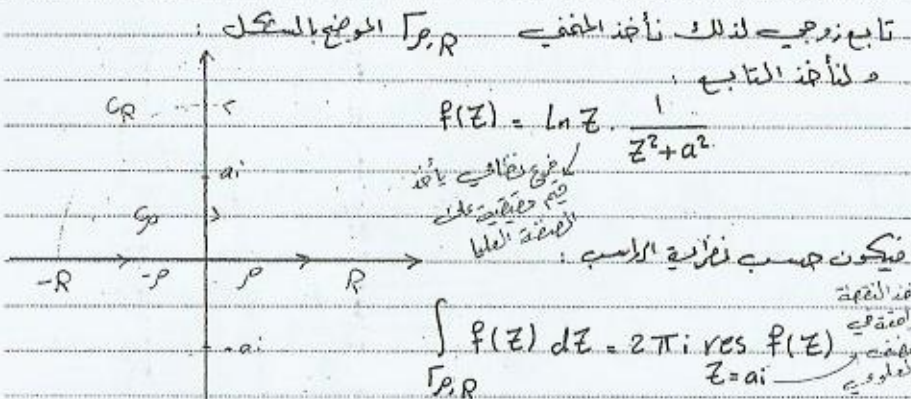 تابع زوجي لذلك نأخذ المنحني Γρ,R الموضح بالشكل :
و لنأخذ التابع :
f(z) = Ln z . 1 / z²+a²
فرع نظامي يأخذ
قيم حقيقية على
الضفة العليا
CR
ai
Cρ
-R -ρ ρ R
-ai
فيكون حسب نظرية الرواسب :
∫Γρ,R f(z) dz = 2πi res f(z)
z=ai
هذه النقطة